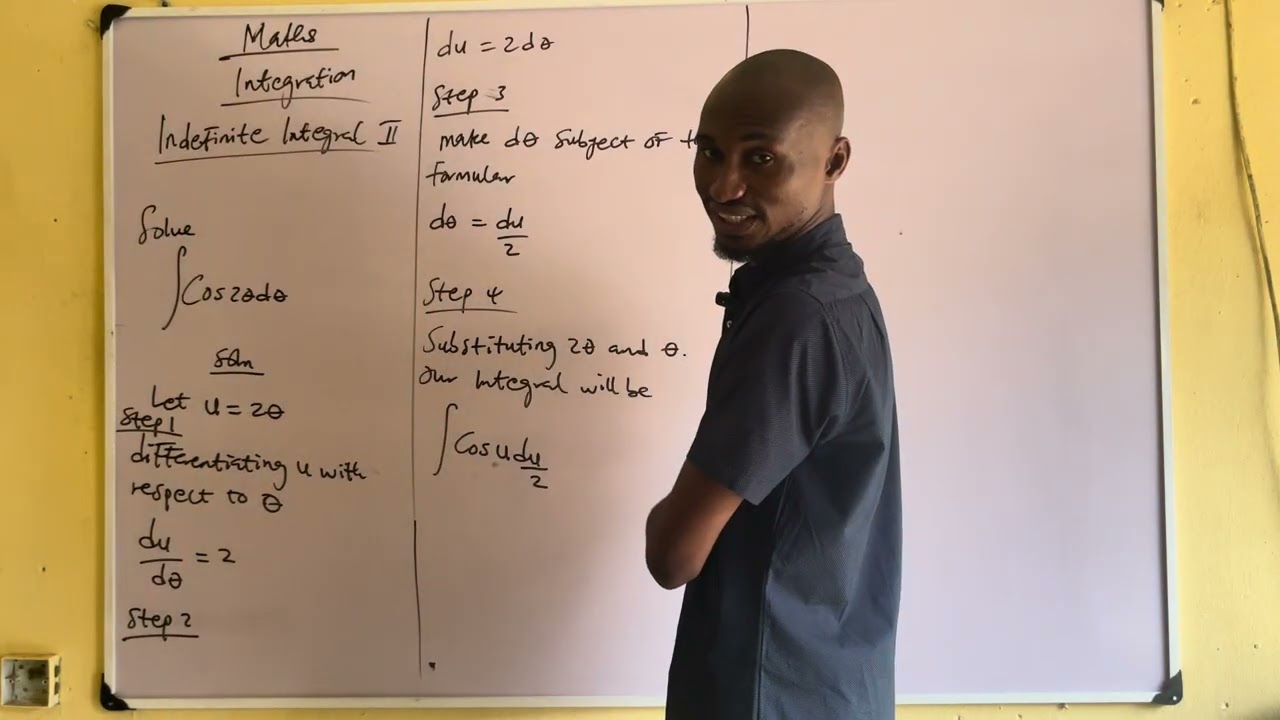 Maths
Integration
Indefinite Integral II
Solve
∫Cos2θdθ
soln
Let u = 2θ
Step 1
differentiating u with
respect to θ
du/dθ = 2
Step 2
du = 2dθ
Step 3
make dθ Subject of
formular
dθ = du/2
Step 4
Substituting 2θ and θ.
Our Integral will be
∫Cos u du/2